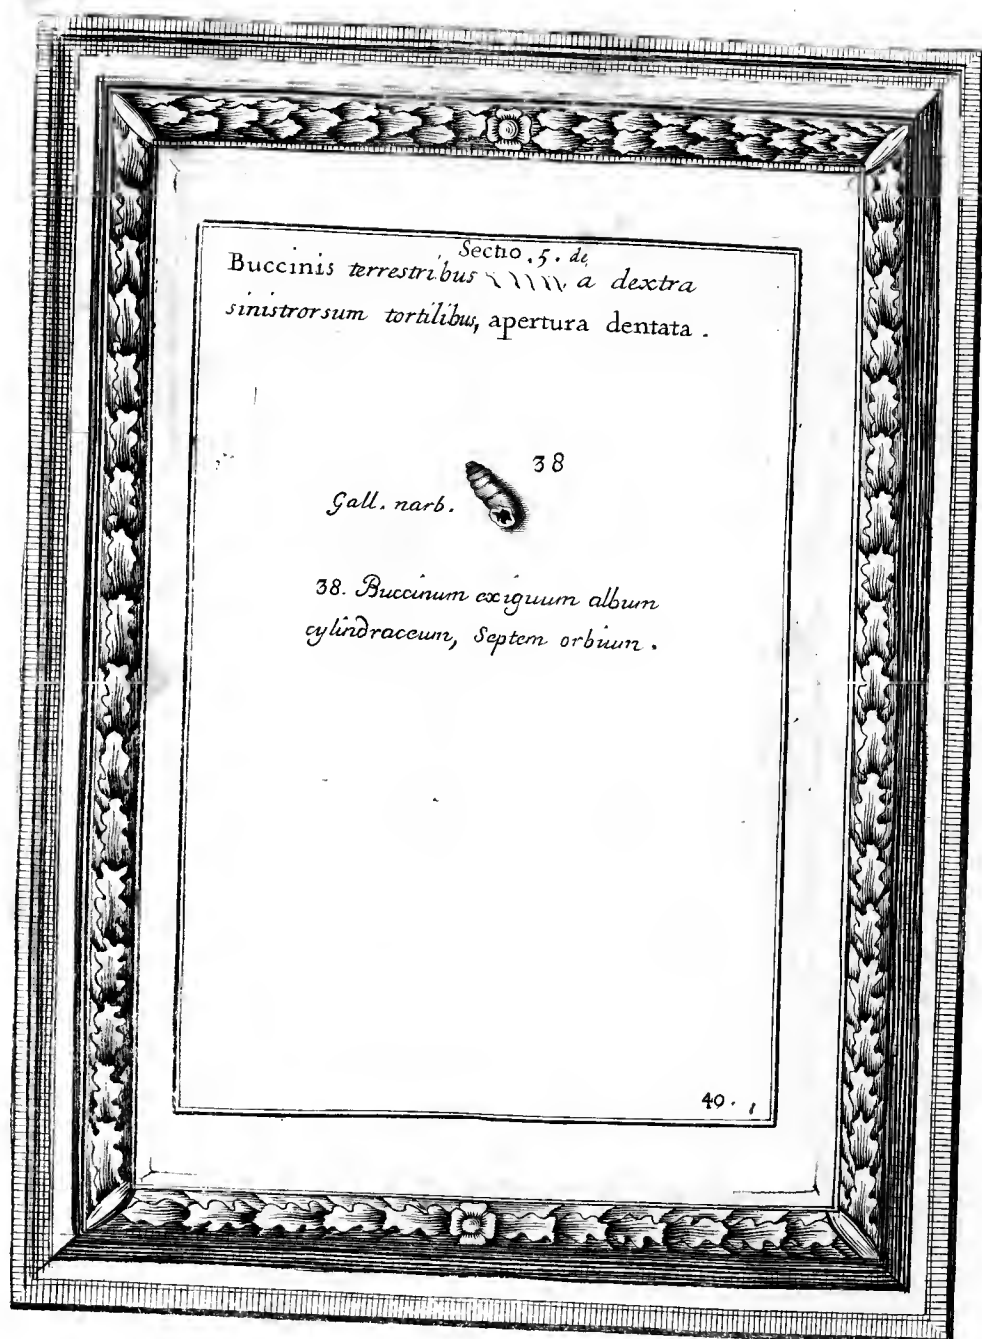 Sectio . 5 . de
Buccinis terrestribus a dextra
sinistrorsum tortilibus, apertura dentata .
38
Gall. narb.
38. Buccinum exiguum album
cylindraceum, Septem orbium .
40.